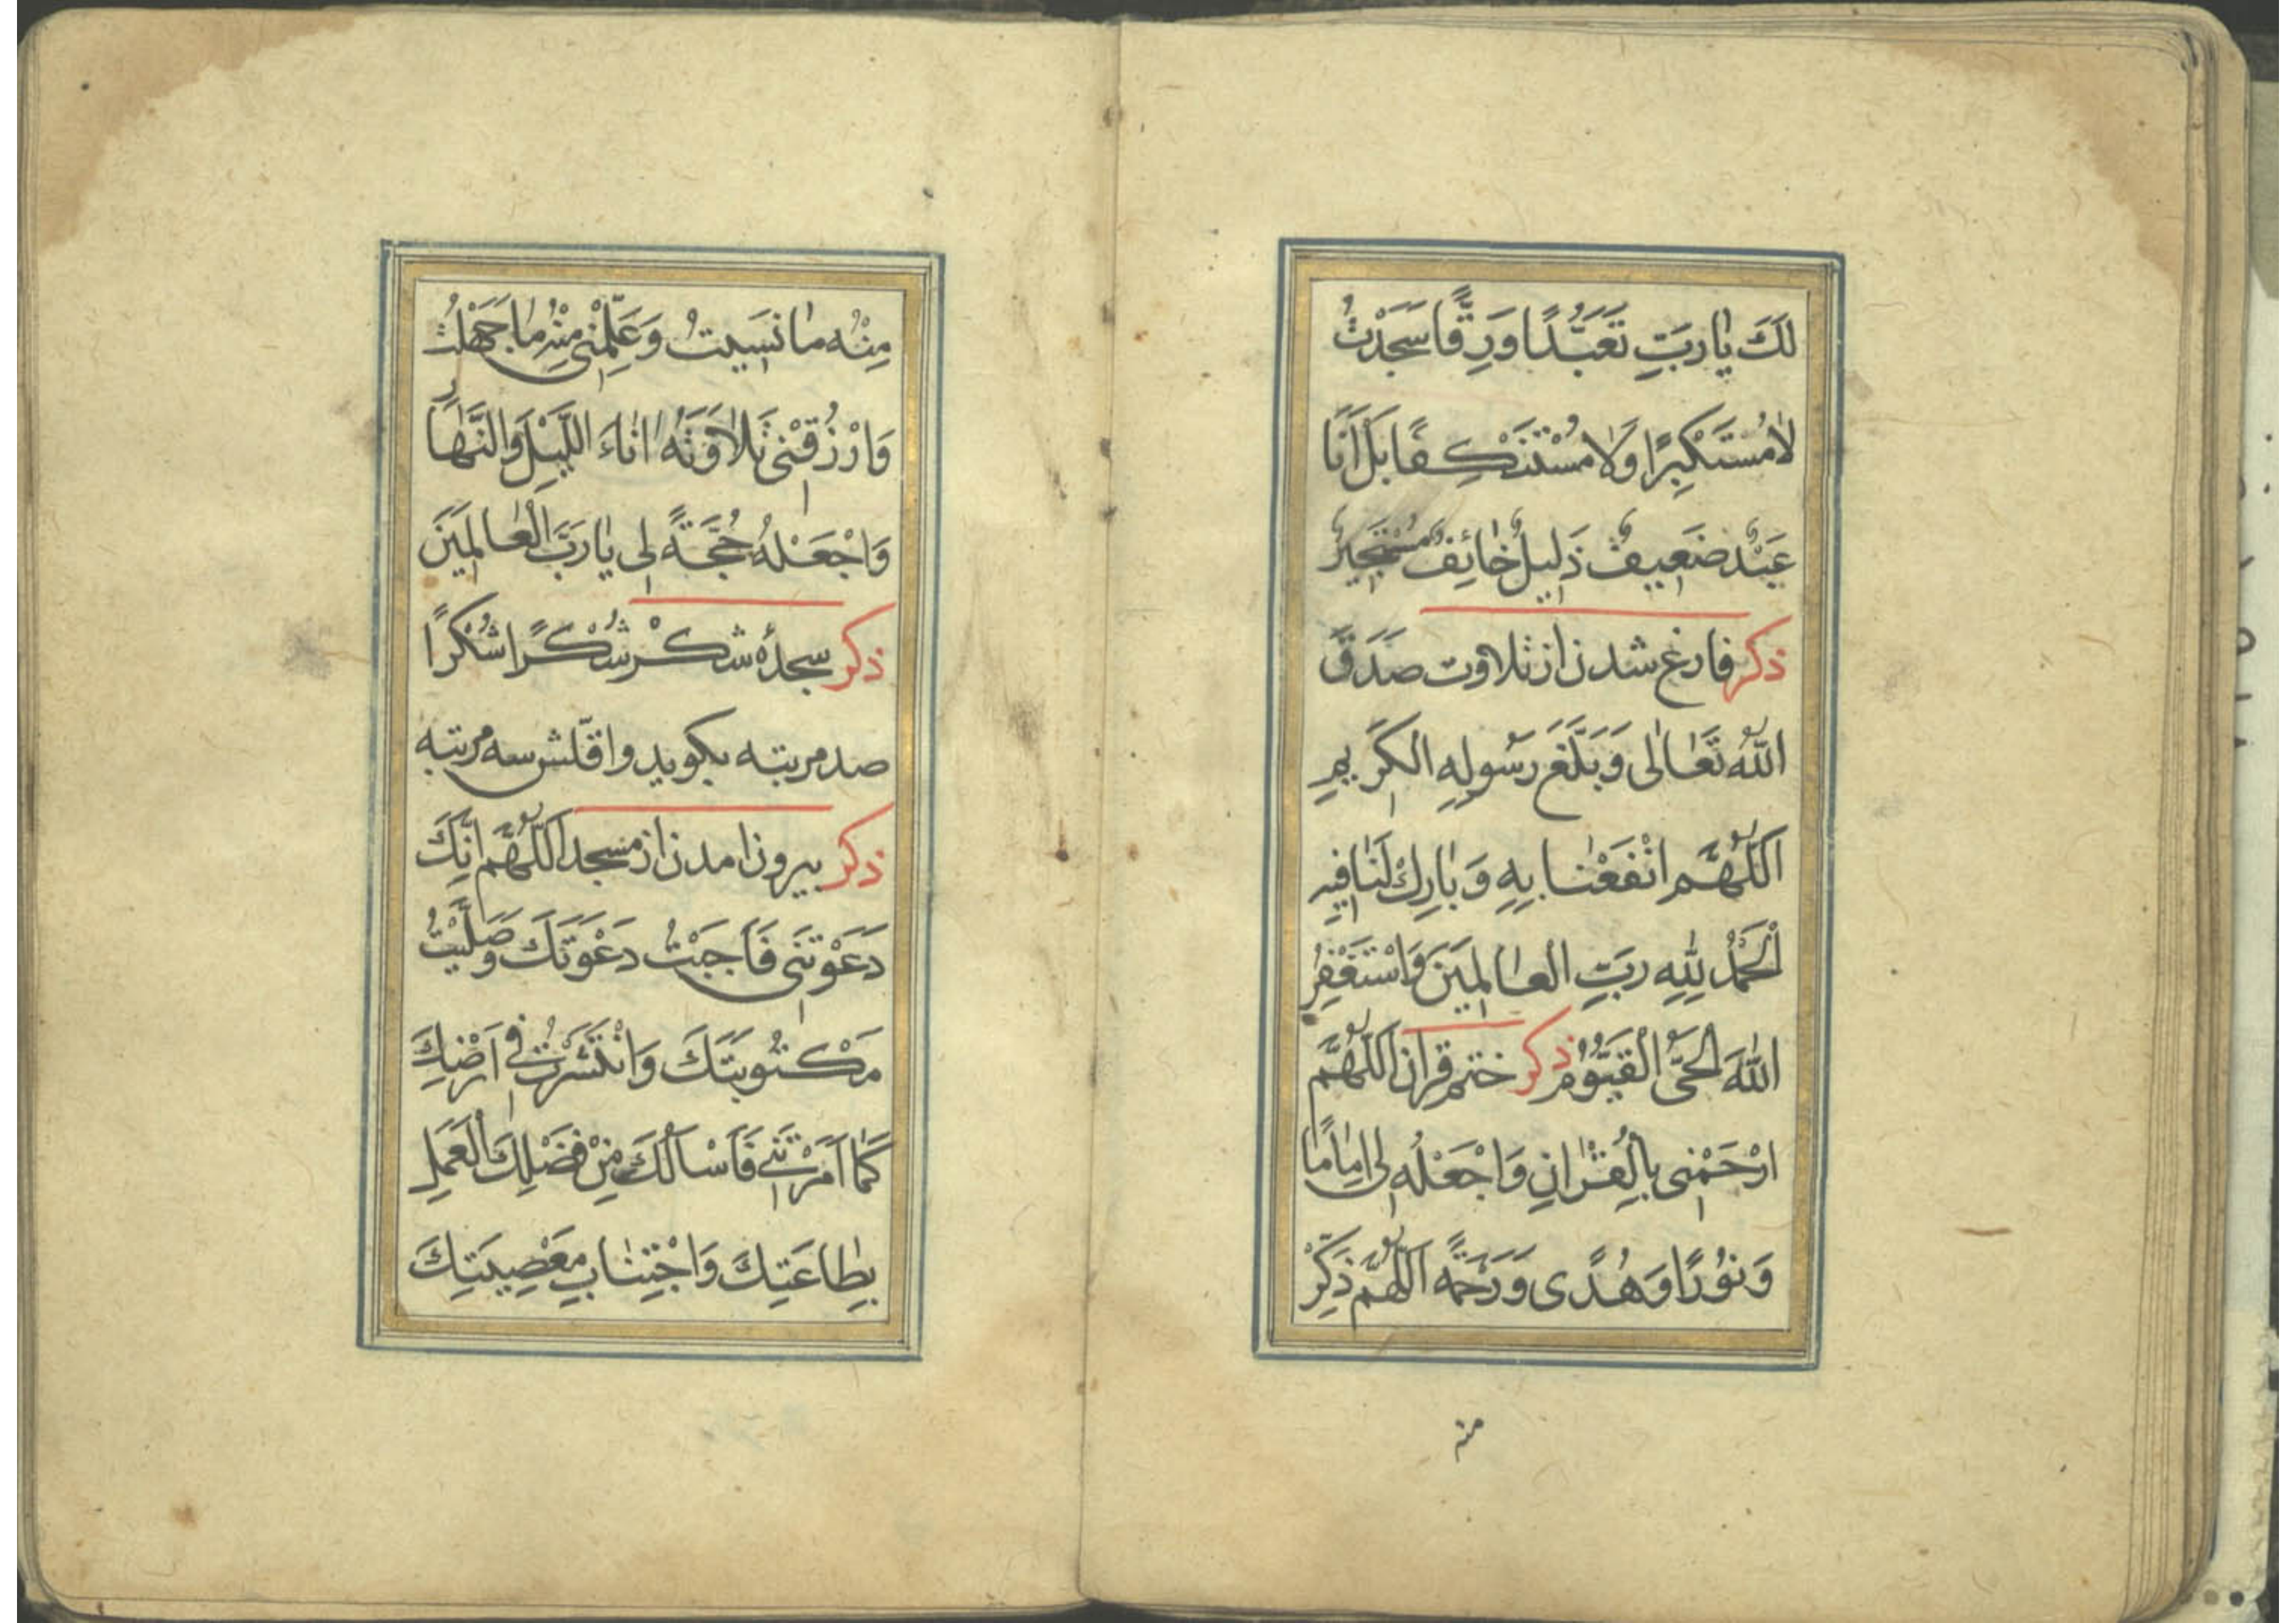 لَكَ يٰا رَبِّ تَعَبُّدًا وَرِقًّا سَجَدْتُ
لٰا مُسْتَكْبِرًا وَلٰا مُسْتَنْكِفًا بَلْ اَنَا
عَبْدٌ ضَعِيفٌ ذَلِيلٌ خٰائِفٌ مُسْتَجِيرٌ
ذكر فارغ شدن از تلاوت صَدَقَ
اللّٰهُ تَعٰالٰى وَبَلَّغَ رَسُولِهِ الْكَرِيمِ
اَللّٰهُمَّ انْفَعْنٰا بِهِ وَبٰارِكْ لَنٰا فِيهِ
اَلْحَمْدُ لِلّٰهِ رَبِّ الْعٰالَمِينَ وَاَسْتَغْفِرُ
اللّٰهَ الْحَىَّ الْقَيُّومُ ذكر ختم قران اَللّٰهُمَّ
ارْحَمْنِى بِالْقُرْاٰنِ وَاجْعَلْهُ لِى اِمٰامًا
وَنُورًا وَهُدًى وَرَحْمَةً اَللّٰهُمَّ ذَكِّرْ
منه
مِنْهُ مٰا نَسِيتُ وَعَلِّمْنِى مِنْهُ مٰا جَهِلْتُ
وَارْزُقْنِى تِلٰاوَتَهُ اٰنٰاءَ اللَّيْلِ وَالنَّهٰارِ
وَاجْعَلْهُ حُجَّةً لِى يٰا رَبَّ الْعٰالَمِينَ
ذكر سجدهٔ شكر شُكْرًا شُكْرًا
صد مرتبه بكويد و اقلّش سه مرتبه
ذكر بيرون امدن از مسجد اَللّٰهُمَّ اِنَّكَ
دَعَوْتَنِى فَاَجَبْتُ دَعْوَتَكَ وَصَلَّيْتُ
مَكْتُوبَتَكَ وَانْتَشَرْتُ فِى اَرْضِكَ
كَمٰا اَمَرْتَنِى فَاَسْاَلُكَ مِنْ فَضْلِكَ الْعَمَلَ
بِطٰاعَتِكَ وَاجْتِنٰابِ مَعْصِيَتِكَ